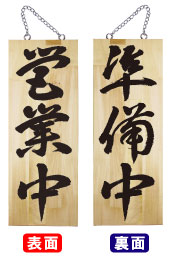 営業中
準備中
表面
裏面